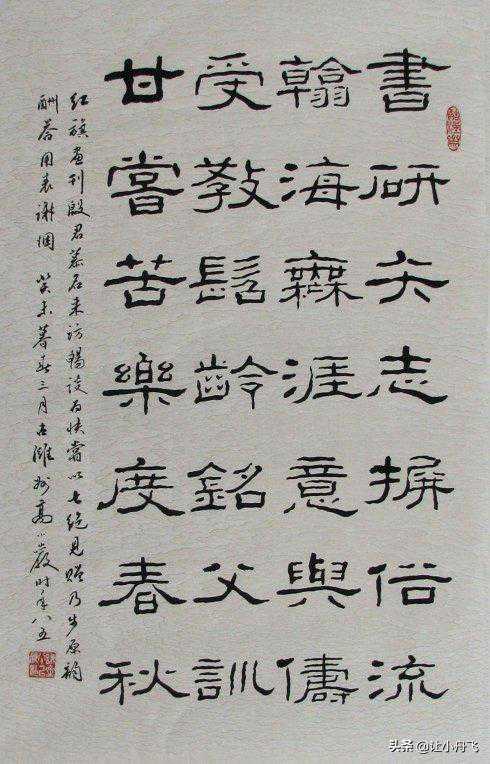 書研矢志摒俗流
翰海無涯意與儔
受教髫齡銘父訓
甘嘗苦樂度春秋
红旗画刊殷君慕名来访畅谈为快嘗以七绝见赠乃步原韵
酬答用表谢悃 癸未暮春三月古潍州高小巖时年八五
头条 @让小丹飞